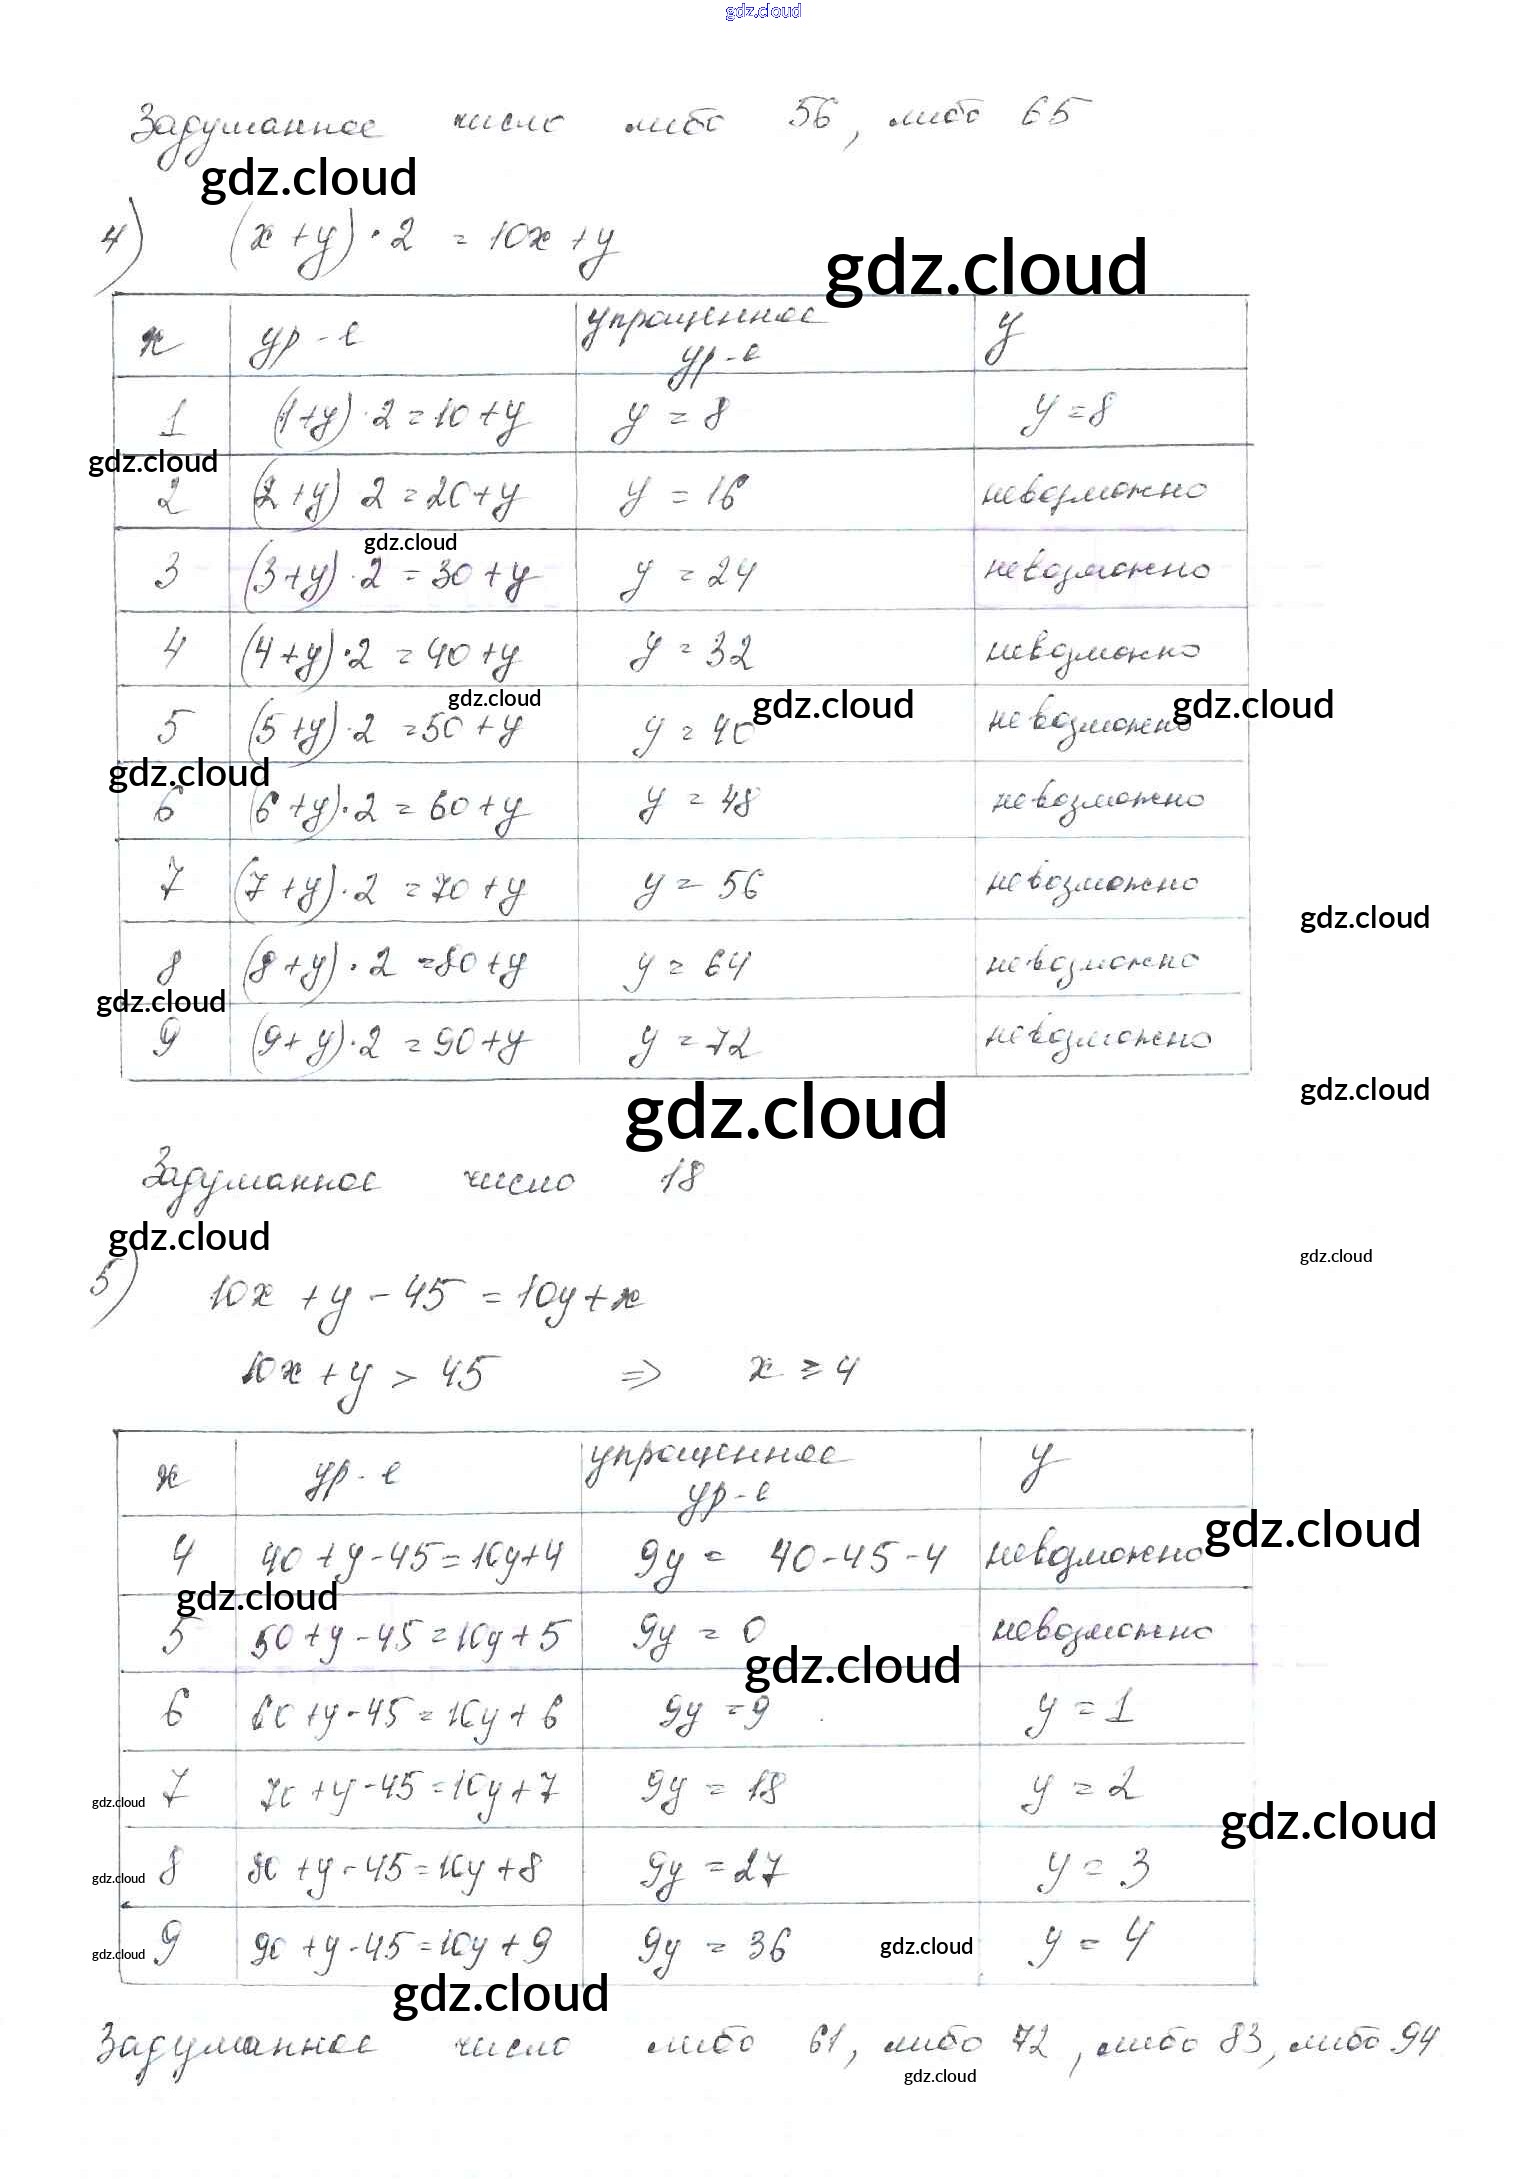 gdz.cloud
Задуманное число либо 56, либо 65
gdz.cloud
4) (x + y) · 2 = 10x + y
gdz.cloud
x ур-е упрощенное ур-е y
1 (1+y) · 2 = 10 + y y = 8 y = 8
gdz.cloud
2 (2+y) 2 = 20 + y y = 16 невозможно
gdz.cloud
3 (3+y) · 2 = 30 + y y = 24 невозможно
4 (4+y) · 2 = 40 + y y = 32 невозможно
gdz.cloud gdz.cloud gdz.cloud
5 (5+y) · 2 = 50 + y y = 40 невозможно
gdz.cloud
6 (6+y) · 2 = 60 + y y = 48 невозможно
7 (7+y) · 2 = 70 + y y = 56 невозможно
gdz.cloud
8 (8+y) · 2 = 80 + y y = 64 невозможно
gdz.cloud
9 (9+y) · 2 = 90 + y y = 72 невозможно
gdz.cloud
gdz.cloud
Задуманное число 18
gdz.cloud
gdz.cloud
5) 10x + y - 45 = 10y + x
10x + y > 45 => x ≥ 4
x ур-е упрощенное ур-е y
gdz.cloud
4 40 + y - 45 = 10y + 4 9y = 40 - 45 - 4 невозможно
gdz.cloud
5 50 + y - 45 = 10y + 5 9y = 0 невозможно
gdz.cloud
6 60 + y - 45 = 10y + 6 9y = 9 y = 1
gdz.cloud
7 70 + y - 45 = 10y + 7 9y = 18 y = 2
gdz.cloud
gdz.cloud
8 80 + y - 45 = 10y + 8 9y = 27 y = 3
gdz.cloud
9 90 + y - 45 = 10y + 9 9y = 36 y = 4
gdz.cloud
gdz.cloud
Задуманное число либо 61, либо 72, либо 83, либо 94
gdz.cloud